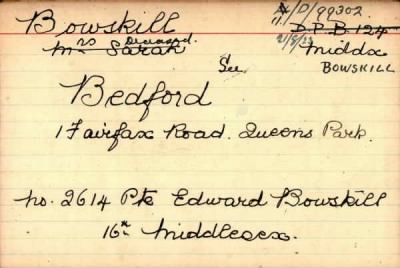 Bowskill
Mrs Sarah Deceased.
/D/99302
D.P.B. 124
Middx
BOWSKILL
See
Bedford
1 Fairfax Road. Queens Park.
No. 2614 Pte Edward Bowskill
16th Middlesex.